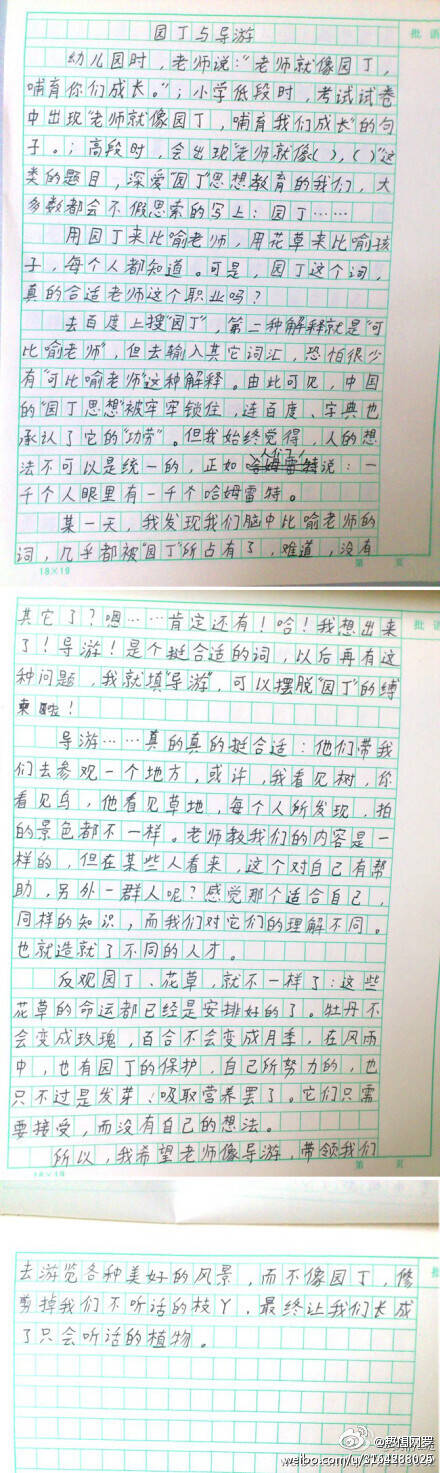 园丁与导游
批语
幼儿园时，老师说："老师就像园丁，
哺育你们成长。"；小学低段时，考试试卷
中出现"老师就像园丁，哺育我们成长"的句
子。；高段时，会出现"老师就像( )，( )"这
类的题目，深爱"园丁"思想教育的我们，大
多数都会不假思索的写上：园丁……
用园丁来比喻老师，用花草来比喻孩
子，每个人都知道。可是，园丁这个词，
真的合适老师这个职业吗？
去百度上搜"园丁"，第二种解释就是"可
比喻老师"，但去输入其它词汇，恐怕很少
有"可比喻老师"这种解释。由此可见，中国
的"园丁思想"被牢牢锁住，连百度、字典也
承认了它的"功劳"。但我始终觉得，人的想
人们
法不可以是统一的，正如哈姆雷特说：一
千个人眼里有一千个哈姆雷特。
某一天，我发现我们脑中比喻老师的
词，几乎都被"园丁"所占有了，难道，没有
18×19
第 页
其它了？嗯……肯定还有！哈！我想出来
批语
了！导游！是个挺合适的词，以后再有这
种问题，我就填"导游"，可以摆脱"园丁"的缚
束啦！
导游……真的真的挺合适：他们带我
们去参观一个地方，或许，我看见树，你
看见鸟，他看见草地，每个人所发现、拍
的景色都不一样。老师教我们的内容是一
样的，但在某些人看来，这个对自己有帮
助，另外一群人呢？感觉那个适合自己，
同样的知识，而我们对它们的理解不同。
也就造就了不同的人才。
反观园丁、花草，就不一样了：这些
花草的命运都已经是安排好的了。牡丹不
会变成玫瑰，百合不会变成月季，在风雨
中，也有园丁的保护，自己所努力的，也
只不过是发芽、吸取营养罢了。它们只需
要接受，而没有自己的想法。
所以，我希望老师像导游，带领我们
18×19
第 页
去游览各种美好的风景，而不像园丁，修
剪掉我们不听话的枝丫，最终让我们长成
了只会听话的植物。
weibo.com/u/3164288025